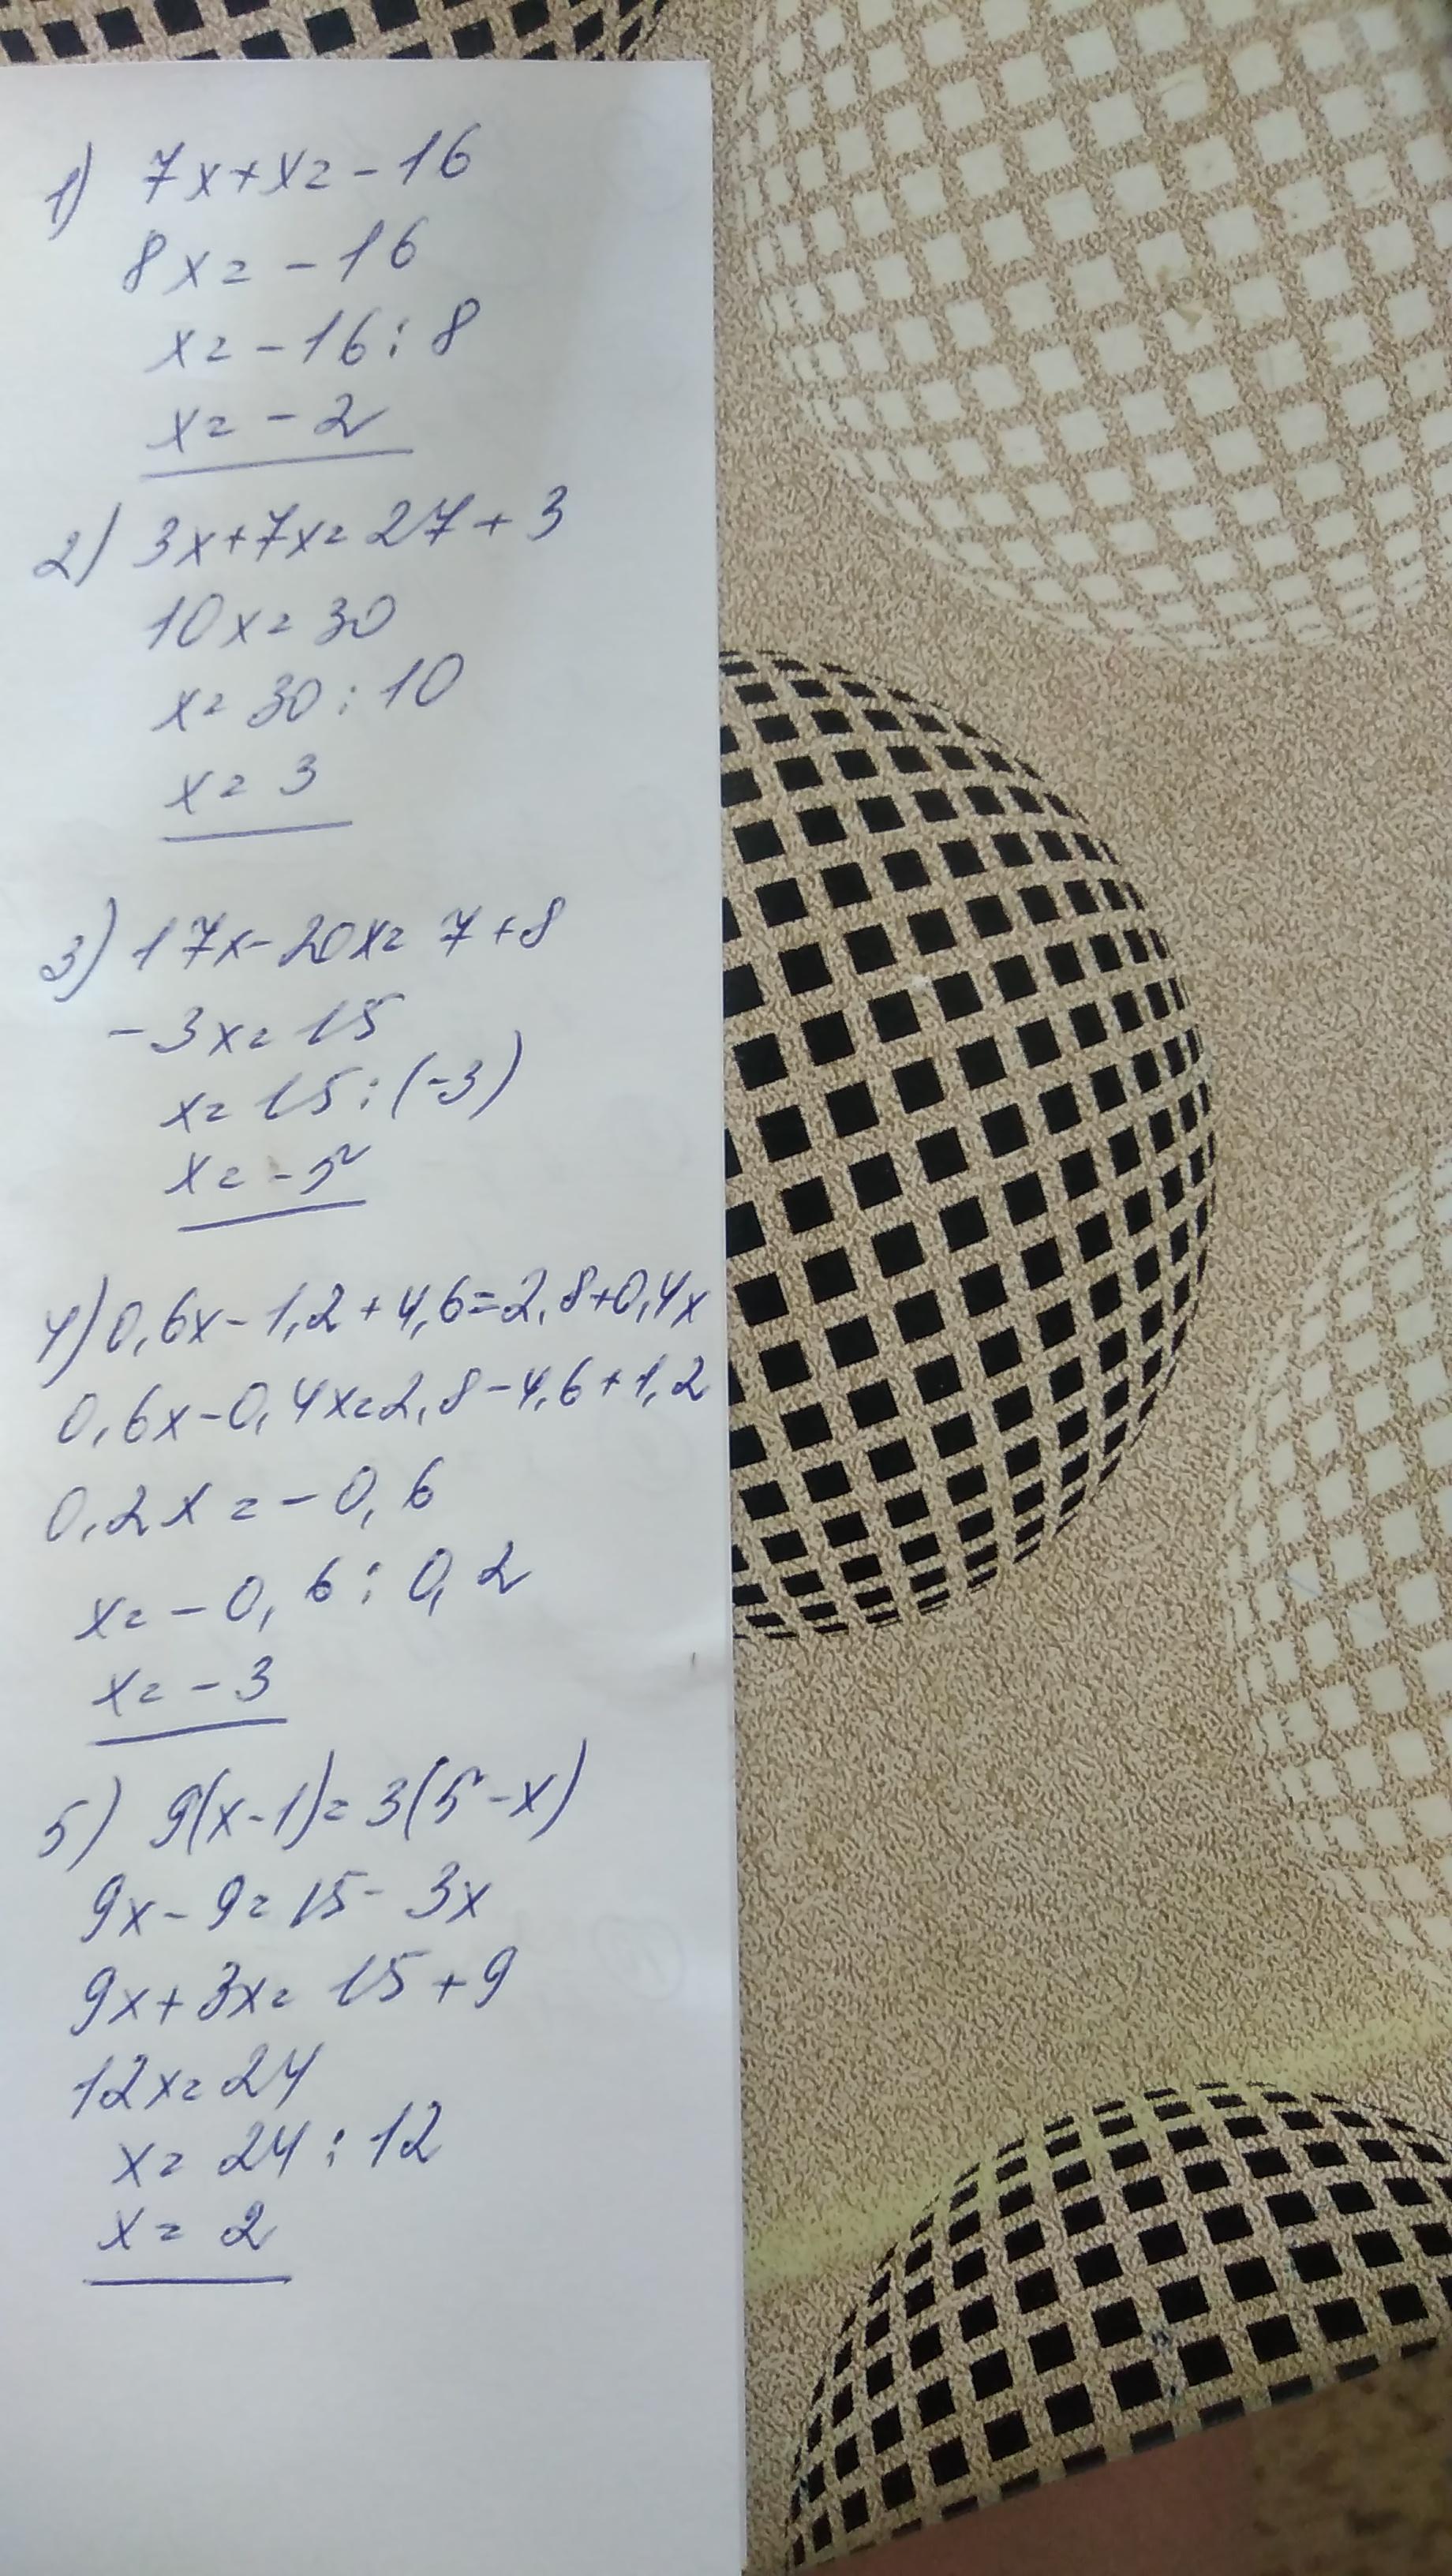 1) 7x+x=-16
8x=-16
x=-16:8
x=-2
2) 3x+7x=27+3
10x=30
x=30:10
x=3
3) 17x-20x=7+8
-3x=15
x=15:(-3)
x=-5
4) 0,6x-1,2+4,6=2,8+0,4x
0,6x-0,4x=2,8-4,6+1,2
0,2x=-0,6
x=-0,6:0,2
x=-3
5) 9(x-1)=3(5-x)
9x-9=15-3x
9x+3x=15+9
12x=24
x=24:12
x=2